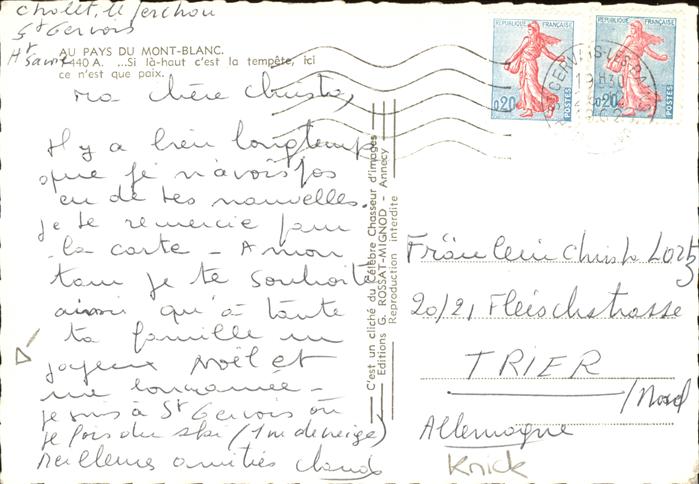 cholet, le Jerchou
St Gervois
Ht Savoie
AU PAYS DU MONT-BLANC.
440 A. ...Si là-haut c'est la tempête, ici
ce n'est que paix.
ma chère Christa,
Il y a bien longtemps
que je n'avois pas
eu de tes nouvelles.
je te remercie pour
la carte - A mon
tour je te souhaite
ainsi qu'à toute
ta famille un
joyeux Noël et
une bonne année -
je suis à St Gervois où
je fois du ski (1m de neige)
Meilleures amitiés
C'est un cliché du Célèbre Chasseur d'images
Editions G. ROSSAT-MIGNOD - Annecy
Reproduction interdite
REPUBLIQUE FRANÇAISE
0,20 POSTES
REPUBLIQUE FRANÇAISE
0,20 POSTES
ST GERVAIS-LES-BAINS
19H30
Fräulein Christa Lortz
20/21 Fleischstrasse
TRIER
/Nord
Allemagne
Knick